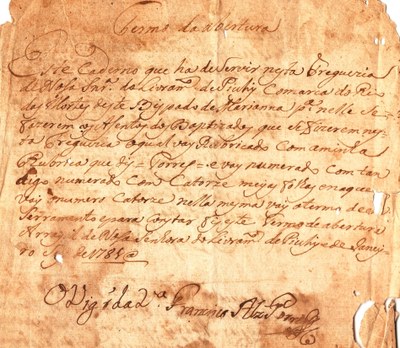 Thermo da abertura
Este Caderno que ha de servir nesta Freguezia
de Nosa Snr.ª do Livram.to de Piuhy Comarca do Rio
das Mortes deste Bispado de Marianna p.ª nelle se
fizerem os Asentos dos Baptizados que se fizerem nes
ta Freguezia o qual vay Rubricado Com a minha
Rubrica que diz Torres e vay numerado com tan
digo numerado com Catorze meyas folhas e na que
diz o numero Catorze nella mesma vay o termo de en
serramento e para constar fiz este Termo de abertura
Array.l de Nosa Senhora do Livram.to de Piuhy de Janey
ro de 1785
O Vig.º da d.ª Francisco Alz Torres